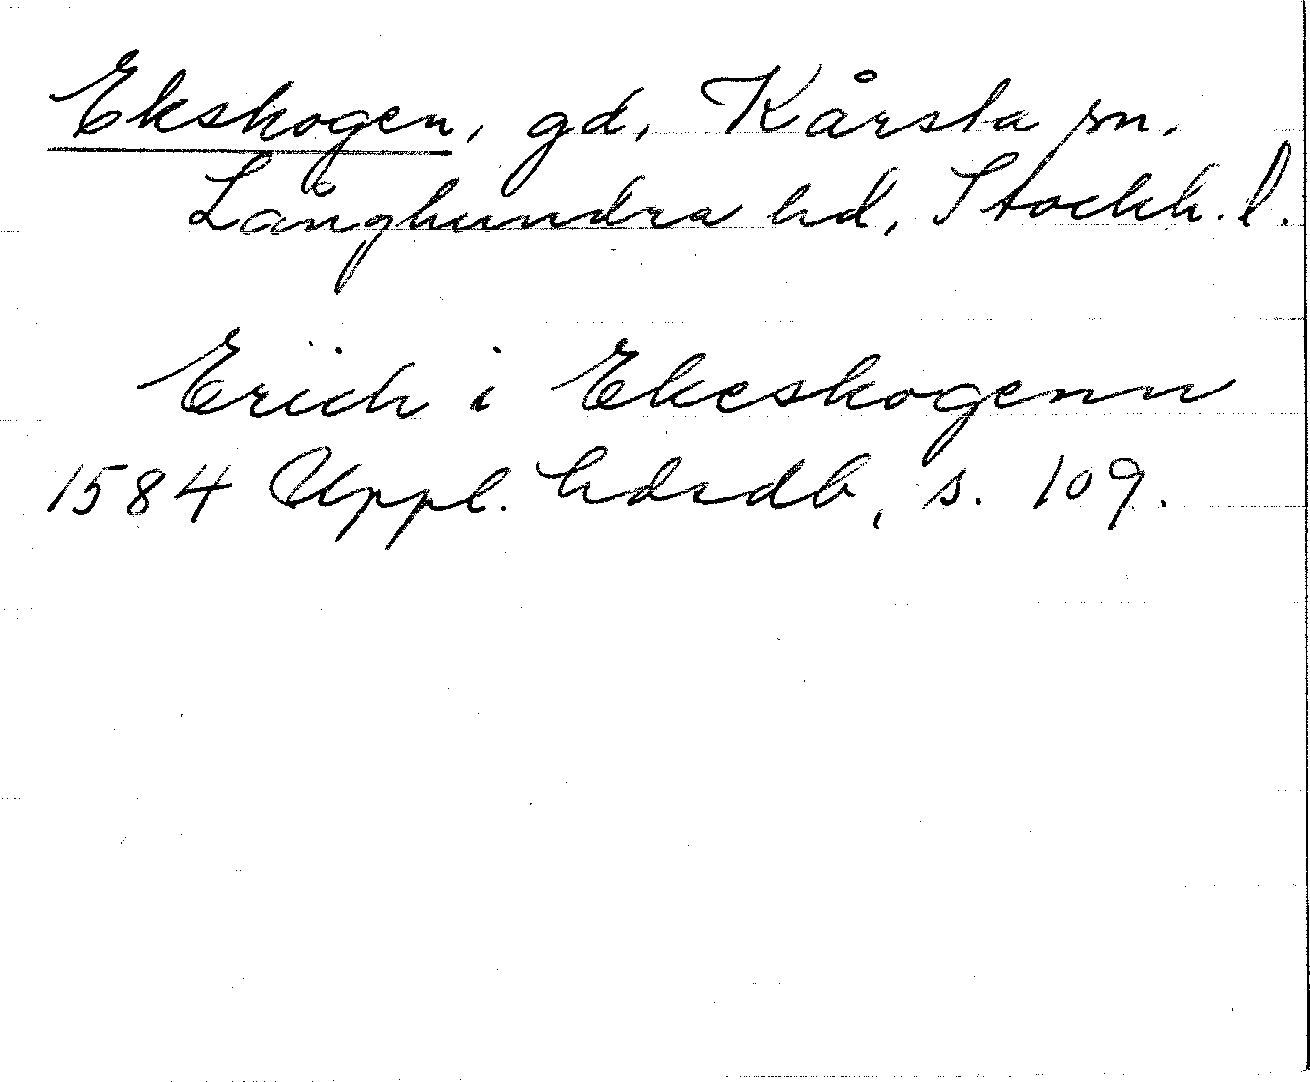 Ekskogen, gd, Kårsta sn.
Långhundra hd, Stockh. l.
Erich i Ekeskogenn
1584 Uppl. hdrdb, s. 109.